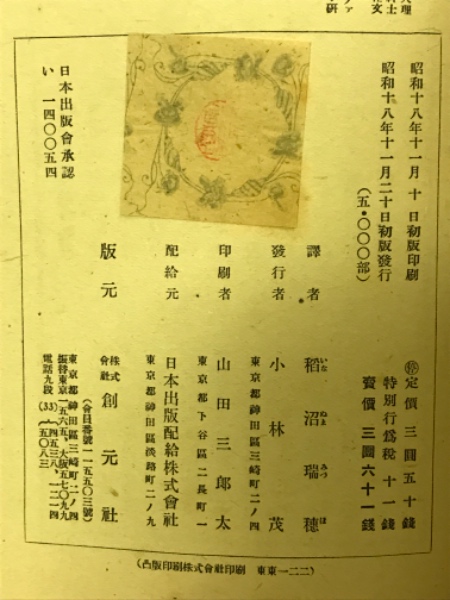 昭和十八年十一月十日初版印刷
昭和十八年十一月二十日初版發行
(五・〇〇〇部)
定價 三圓五十錢
特別行爲税 十一錢
賣價 三圓六十一錢
譯者 稻沼瑞穗
いな ぬま みつ ほ
發行者 小林茂
東京都神田區三崎町二ノ四
印刷者 山田三郎太
東京都下谷區二長町一
配給元 日本出版配給株式會社
東京都神田區淡路町二ノ九
版元 株式會社 創元社
(會員番號一一五五〇三號)
東京都神田區三崎町二ノ四
振替東京一五六五、大阪五七〇九九
電話九段(33)
日本出版會承認
い 一四〇〇五四
(凸版印刷株式會社印刷 東東一二二)